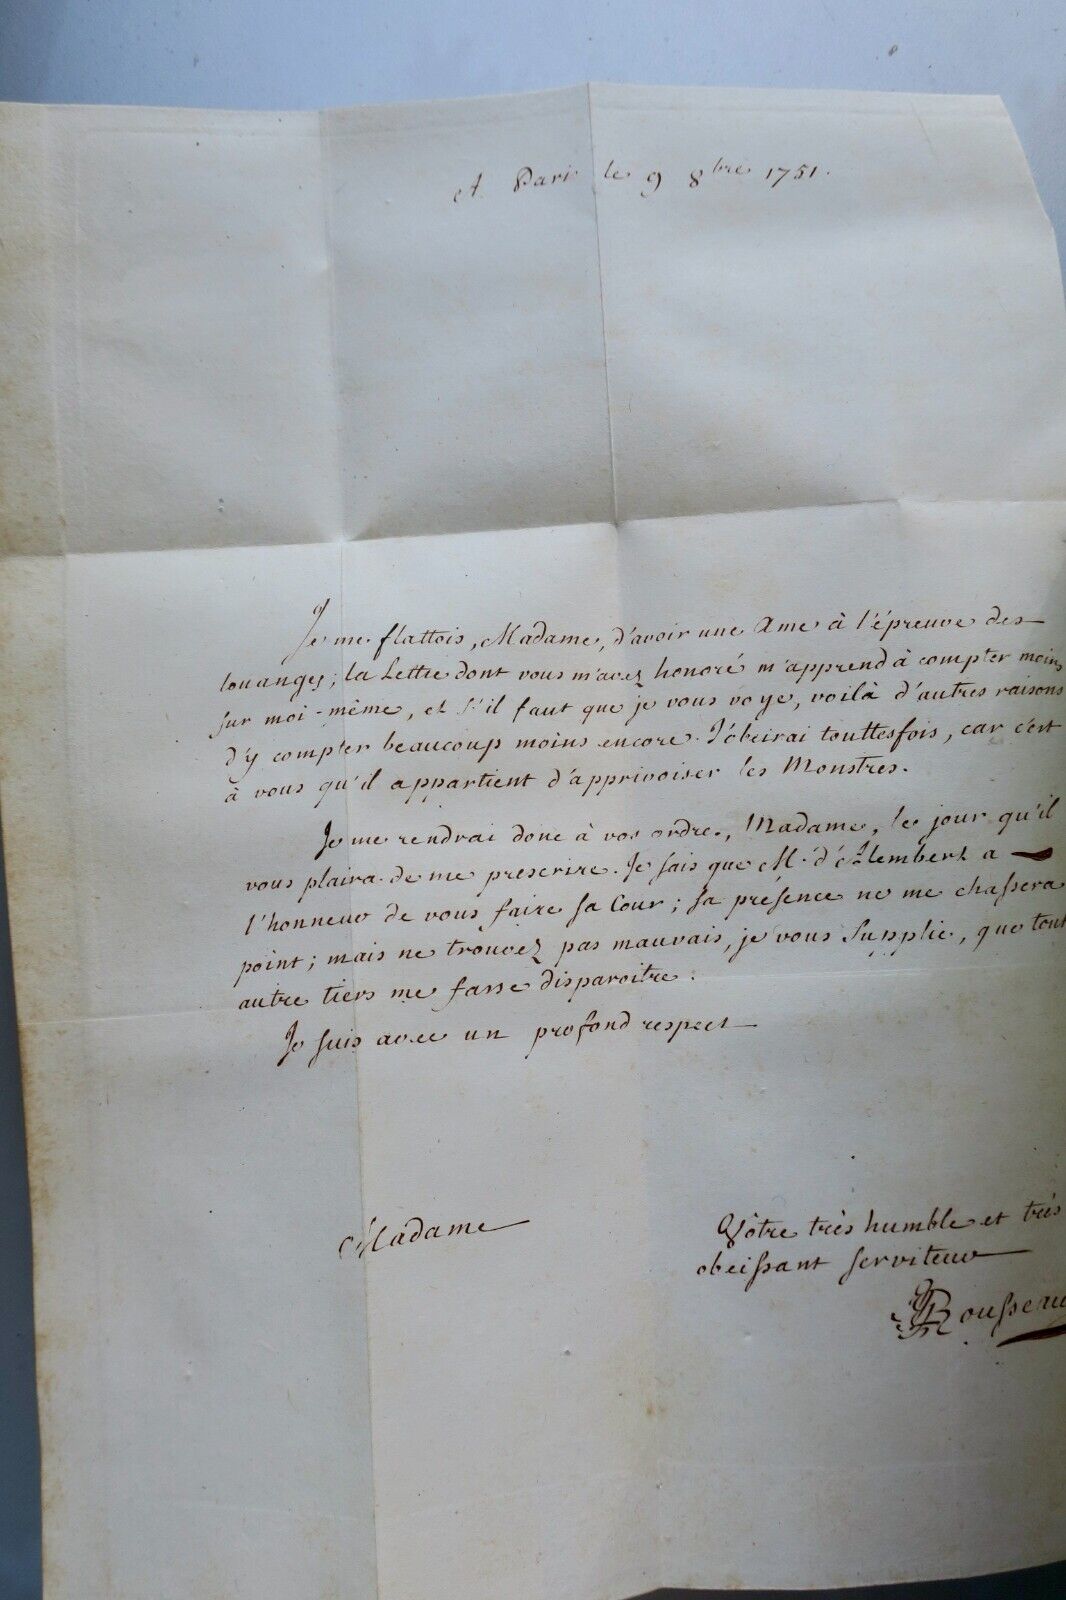 A Paris le 9 8bre 1751.
Je me flattois, Madame, d'avoir une Ame à l'épreuve des
louanges; la Lettre dont vous m'avez honoré m'apprend à compter moins
sur moi-même, et s'il faut que je vous voye, voilà d'autres raisons
d'y compter beaucoup moins encore. J'obeirai touttesfois, car c'est
à vous qu'il appartient d'apprivoiser les Monstres.
Je me rendrai donc à vos ordre, Madame, le jour qu'il
vous plaira de me prescrire. Je sais que M. d'Alembert a
l'honneur de vous faire sa Cour; sa présence ne me chassera
point; mais ne trouvez pas mauvais, je vous supplie, que tout
autre tiers me fasse disparoitre.
Je suis avec un profond respect
Madame
Vôtre très humble et très
obeissant serviteur
JJRousseau